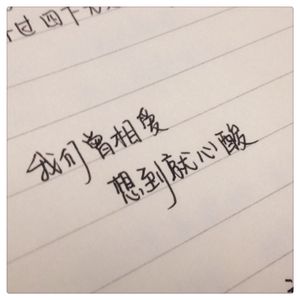 过四下
我们曾相爱
想到就心酸